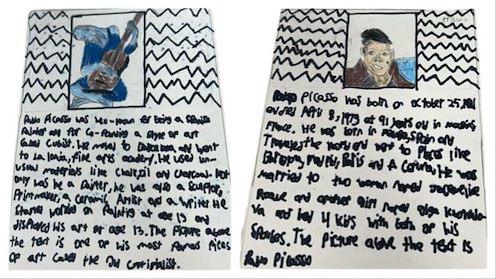 Pablo Picasso was well-known for being a Spanish
Painter and for Co-Founding a style of art
Called Cubist. He moved to Barcelona and went
to La Lonja, Fine arts academy. He used un-
usual materials like Chalk, oil and Charcoal. Not
only was he a Painter, he was also a Sculptor,
Printmaker, a Ceramic Artist and a writer. He
Started working on Painting at age 13 and
displayed his art at age 13. The Picture above
the text is one of his most famous Pices
of art called The Old Guitarist.
Pablo Picasso was born on october 25, 1881
and died April 8, 1973 at 91 years old in
France. He was born in Spain and
Traveled the world and went to Places like
Paris and A Coruña. He was
married to two women named
Roque and another Girl named Olga
va and had 4 kids with both of his
Spouses. The Picture above the text is
Pablo Picasso